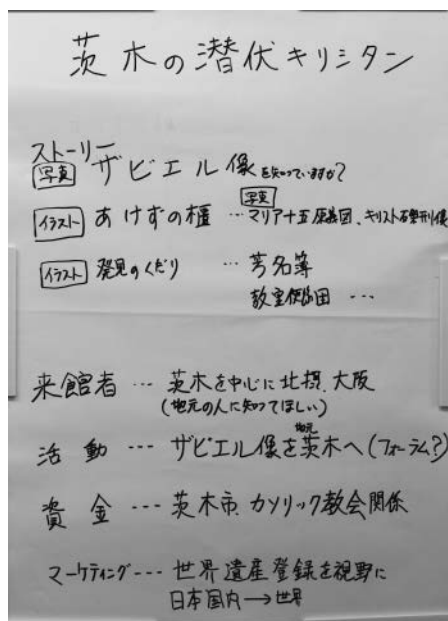 茨木の潜伏キリシタン
ストーリー
写真 ザビエル像を知っていますか?
写真
イラスト あけずの櫃 …マリア十五
イラスト 発見のくだり …芳名簿
…
来館者 … 茨木を中心に北摂、大阪
(地元の人に知ってほしい)
地元
活動 … ザビエル像を茨木へ(フォーラム?)
資金 … 茨木市 カソリック教会関係
マーケティング… 世界遺産登録を視野に
日本国内→世界